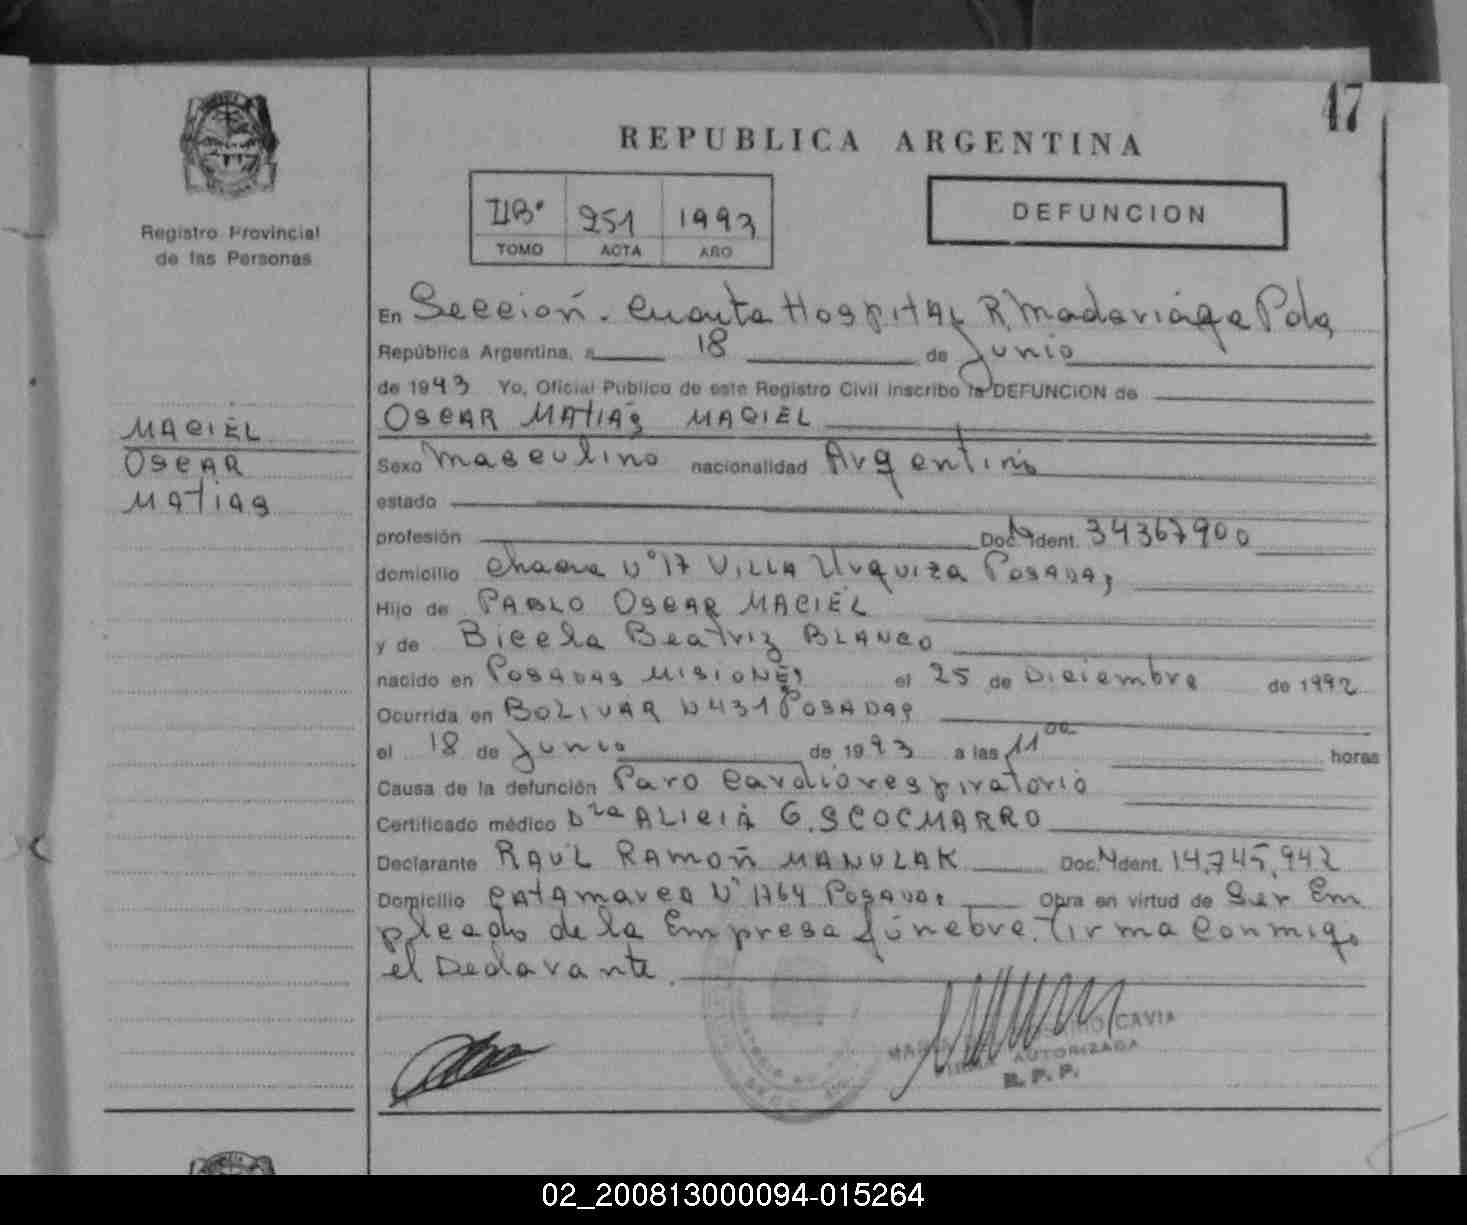 47
REPUBLICA ARGENTINA
Registro Provincial
de las Personas
IIBº 251 1993
TOMO ACTA AÑO
DEFUNCION
En Sección. Cuarta Hospital R. Madariaga Pdas
República Argentina, a 18 de Junio
de 1993 Yo, Oficial Público de este Registro Civil inscribo la DEFUNCION de
OSCAR MATIAS MACIEL
MACIEL
OSCAR
MATIAS
Sexo Masculino nacionalidad Argentino
estado
profesión Doc. N Ident. 34367900
domicilio Chacra Nº 17 VILLA Urquiza POSADAS
Hijo de PABLO OSCAR MACIEL
y de Bicela Beatriz BLANCO
nacido en POSADAS MISIONES el 25 de Diciembre de 1992
Ocurrida en BOLIVAR N 431 POSADAS
el 18 de Junio de 1993 a las 11 00 horas
Causa de la defunción Paro Cardiorespiratorio
Certificado médico Dra ALICIA G. SCOCMARRO
Declarante RAUL RAMON MANULAK Doc. N Ident. 14.745.942
Domicilio CATAMARCA Nº 1764 POSADAS Obra en virtud de Ser Em
pleado de la Empresa fúnebre. Firma Conmigo
el Declarante.
CAVIA
AUTORIZADA
R. P. P.
02_200813000094-015264